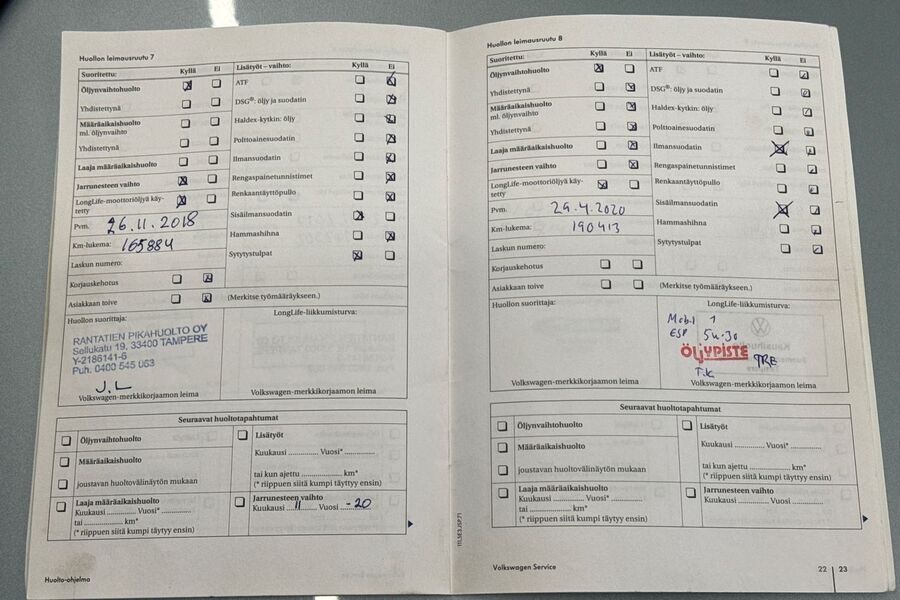 Huollon leimausruutu 7
Suoritettu: Kyllä Ei
Öljynvaihtohuolto
Yhdistettynä
Määräaikaishuolto
ml. öljynvaihto
Yhdistettynä
Laaja määräaikaishuolto
Jarrunesteen vaihto
LongLife-moottoriöljyä käy-
tetty
Pvm. 26.11.2018
Km-lukema: 165884
Laskun numero:
Korjauskehotus
Asiakkaan toive
Lisätyöt – vaihto: Kyllä Ei
ATF
DSG®: öljy ja suodatin
Haldex-kytkin: öljy
Polttoainesuodatin
Ilmansuodatin
Rengaspainetunnistimet
Renkaantäyttöpullo
Sisäilmansuodatin
Hammashihna
Sytytystulpat
(Merkitse työmääräykseen.)
Huollon suorittaja:
RANTATIEN PIKAHUOLTO OY
Sellukatu 19, 33400 TAMPERE
Y-2186141-6
Puh. 0400 545 063
J.L
Volkswagen-merkkikorjaamon leima
LongLife-liikkumisturva:
Volkswagen-merkkikorjaamon leima
Seuraavat huoltotapahtumat
Öljynvaihtohuolto
Määräaikaishuolto
joustavan huoltovälinäytön mukaan
Laaja määräaikaishuolto
Kuukausi .............. Vuosi* ..............
tai ..................... km*
(* riippuen siitä kumpi täytyy ensin)
Lisätyöt
Kuukausi .............. Vuosi* ..............
tai kun ajettu .................... km*
(* riippuen siitä kumpi täytyy ensin)
Jarrunesteen vaihto
Kuukausi ...11... Vuosi -20
Huolto-ohjelma
Huollon leimausruutu 8
Suoritettu: Kyllä Ei
Öljynvaihtohuolto
Yhdistettynä
Määräaikaishuolto
ml. öljynvaihto
Yhdistettynä
Laaja määräaikaishuolto
Jarrunesteen vaihto
LongLife-moottoriöljyä käy-
tetty
Pvm. 29.4.2020
Km-lukema: 190413
Laskun numero:
Korjauskehotus
Asiakkaan toive
Lisätyöt – vaihto: Kyllä Ei
ATF
DSG®: öljy ja suodatin
Haldex-kytkin: öljy
Polttoainesuodatin
Ilmansuodatin
Rengaspainetunnistimet
Renkaantäyttöpullo
Sisäilmansuodatin
Hammashihna
Sytytystulpat
(Merkitse työmääräykseen.)
Huollon suorittaja:
Volkswagen-merkkikorjaamon leima
LongLife-liikkumisturva:
Mobil 1
ESP 5w-30
ÖLJYPISTE TRE
T.K
Volkswagen-merkkikorjaamon leima
Seuraavat huoltotapahtumat
Öljynvaihtohuolto
Määräaikaishuolto
joustavan huoltovälinäytön mukaan
Laaja määräaikaishuolto
Kuukausi .............. Vuosi* ..............
tai ..................... km*
(* riippuen siitä kumpi täytyy ensin)
Lisätyöt
Kuukausi .............. Vuosi* ..............
tai kun ajettu .................... km*
(* riippuen siitä kumpi täytyy ensin)
Jarrunesteen vaihto
Kuukausi .............. Vuosi ..............
Volkswagen Service
22 | 23